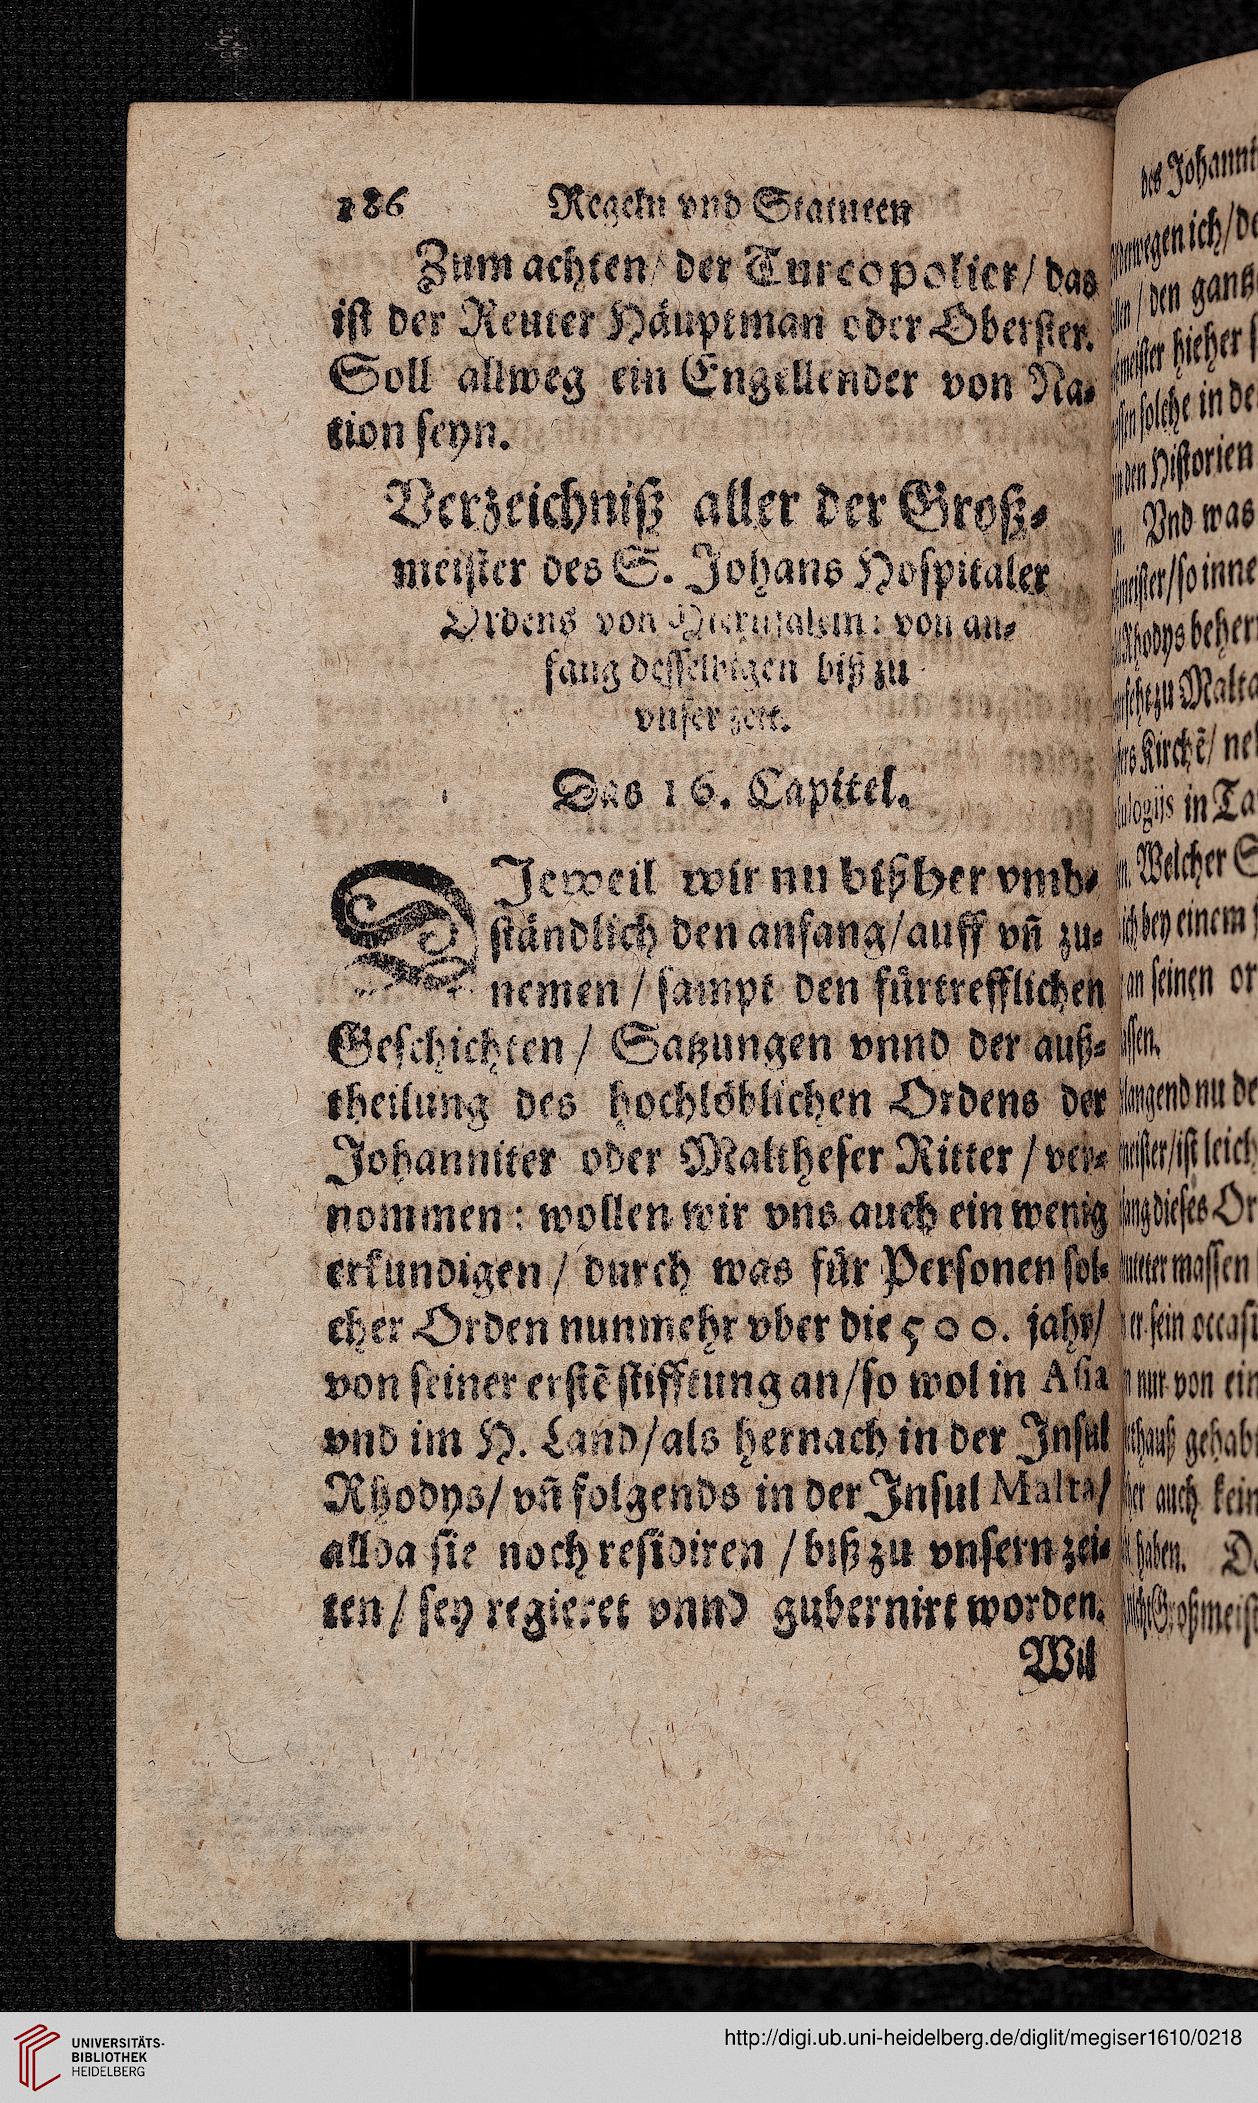 186 Regeln vnd Statuten
Zum achten / der Turcopolier / das
ist der Reuter Häuptman oder Oberster.
Soll allweg ein Engellender von Na⸗
tion seyn.
Verzeichniß aller der Groß⸗
meister des S. Johans Hospitaler
Ordens von Hierusalem: von an⸗
fang desselbigen biß zu
vnser zeit.
Das 16. Capitel.
DJeweil wir nu bißher vmb⸗
ständlich den anfang / auff vn̄ zu⸗
nemen / sampt den fürtrefflichen
Geschichten / Satzungen vnnd der auß⸗
theilung des hochlöblichen Ordens der
Johanniter oder Maltheser Ritter / ver⸗
nommen: wollen wir vns auch ein wenig
erkundigen / durch was für Personen sol⸗
cher Orden nunmehr vber die 500. jahr /
von seiner erstē stifftung an / so wol in Asia
vnd im H. Land / als hernach in der Insul
Rhodys / vn̄ folgends in der Insul Malta /
allda sie noch residiren / biß zu vnsern zei⸗
ten / sey regieret vnnd gubernirt worden.
Wil
des Johanni
wegen ich / de
den gantz
meister hieher
solche in de
den Historien
Vnd was
meister / so inne
Rhodys beher
zu Malta
Kirchē / ne
in Ta
Welcher
bey einem
an seinen or
langend nu de
meister / ist leich
dieses Or
massen
sein occasi
nur von ein
gehab
auch kein
haben. D
Großmeist
UNIVERSITÄTS-
BIBLIOTHEK
HEIDELBERG
http://digi.ub.uni-heidelberg.de/diglit/megiser1610/0218